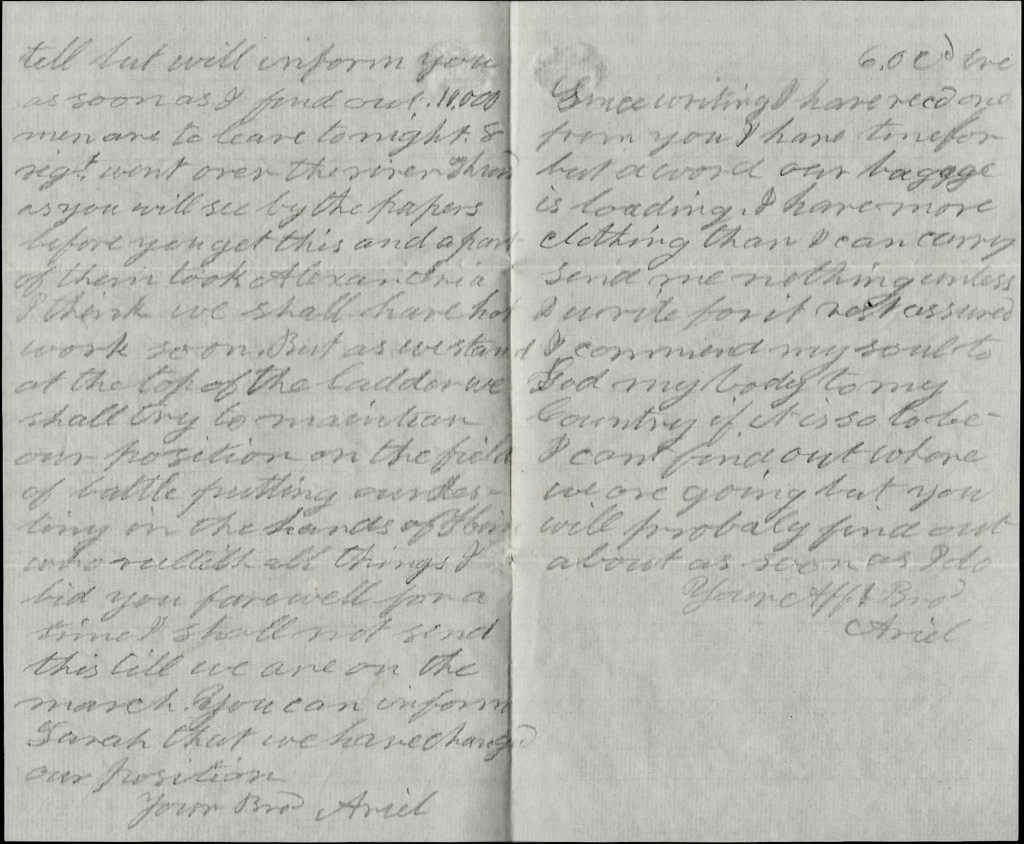 tell but will inform you
as soon as I find out. 10,000
men are to leave tonight. 8
regt. went over the river Thurs
as you will see by the papers
before you get this and a part
of them took Alexandria
I think we shall have hot
work soon. But as we stand
at the top of the ladder we
shall try to maintian
our position on the field
of battle putting our des-
tiny in the hands of Him
who rulleth all things I
bid you farewell for a
time I shall not send
this till we are on the
march. You can inform
Sarah that we have changed
our position
Your Bro Ariel
6. O C Eve
Since writing I have recd one
from you I have time for
but a word our baggge
is loading. I have more
clothing than I can carry
Send me nothing unless
I write for it rest assured
I commend my soul to
God my body to my
Country if it is so to be-
I cant find out where
we are going but you
will probaly find out
about as soon as I do
Your Afft Bro
Ariel